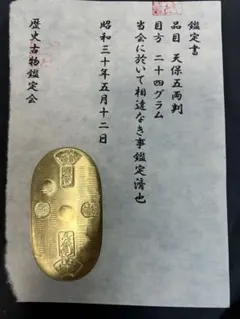 鑑定書
品目 天保五両判
目方 二十四グラム
当会に於いて相違なき事鑑定済也
昭和三十年五月十二日
歴史古物鑑定会